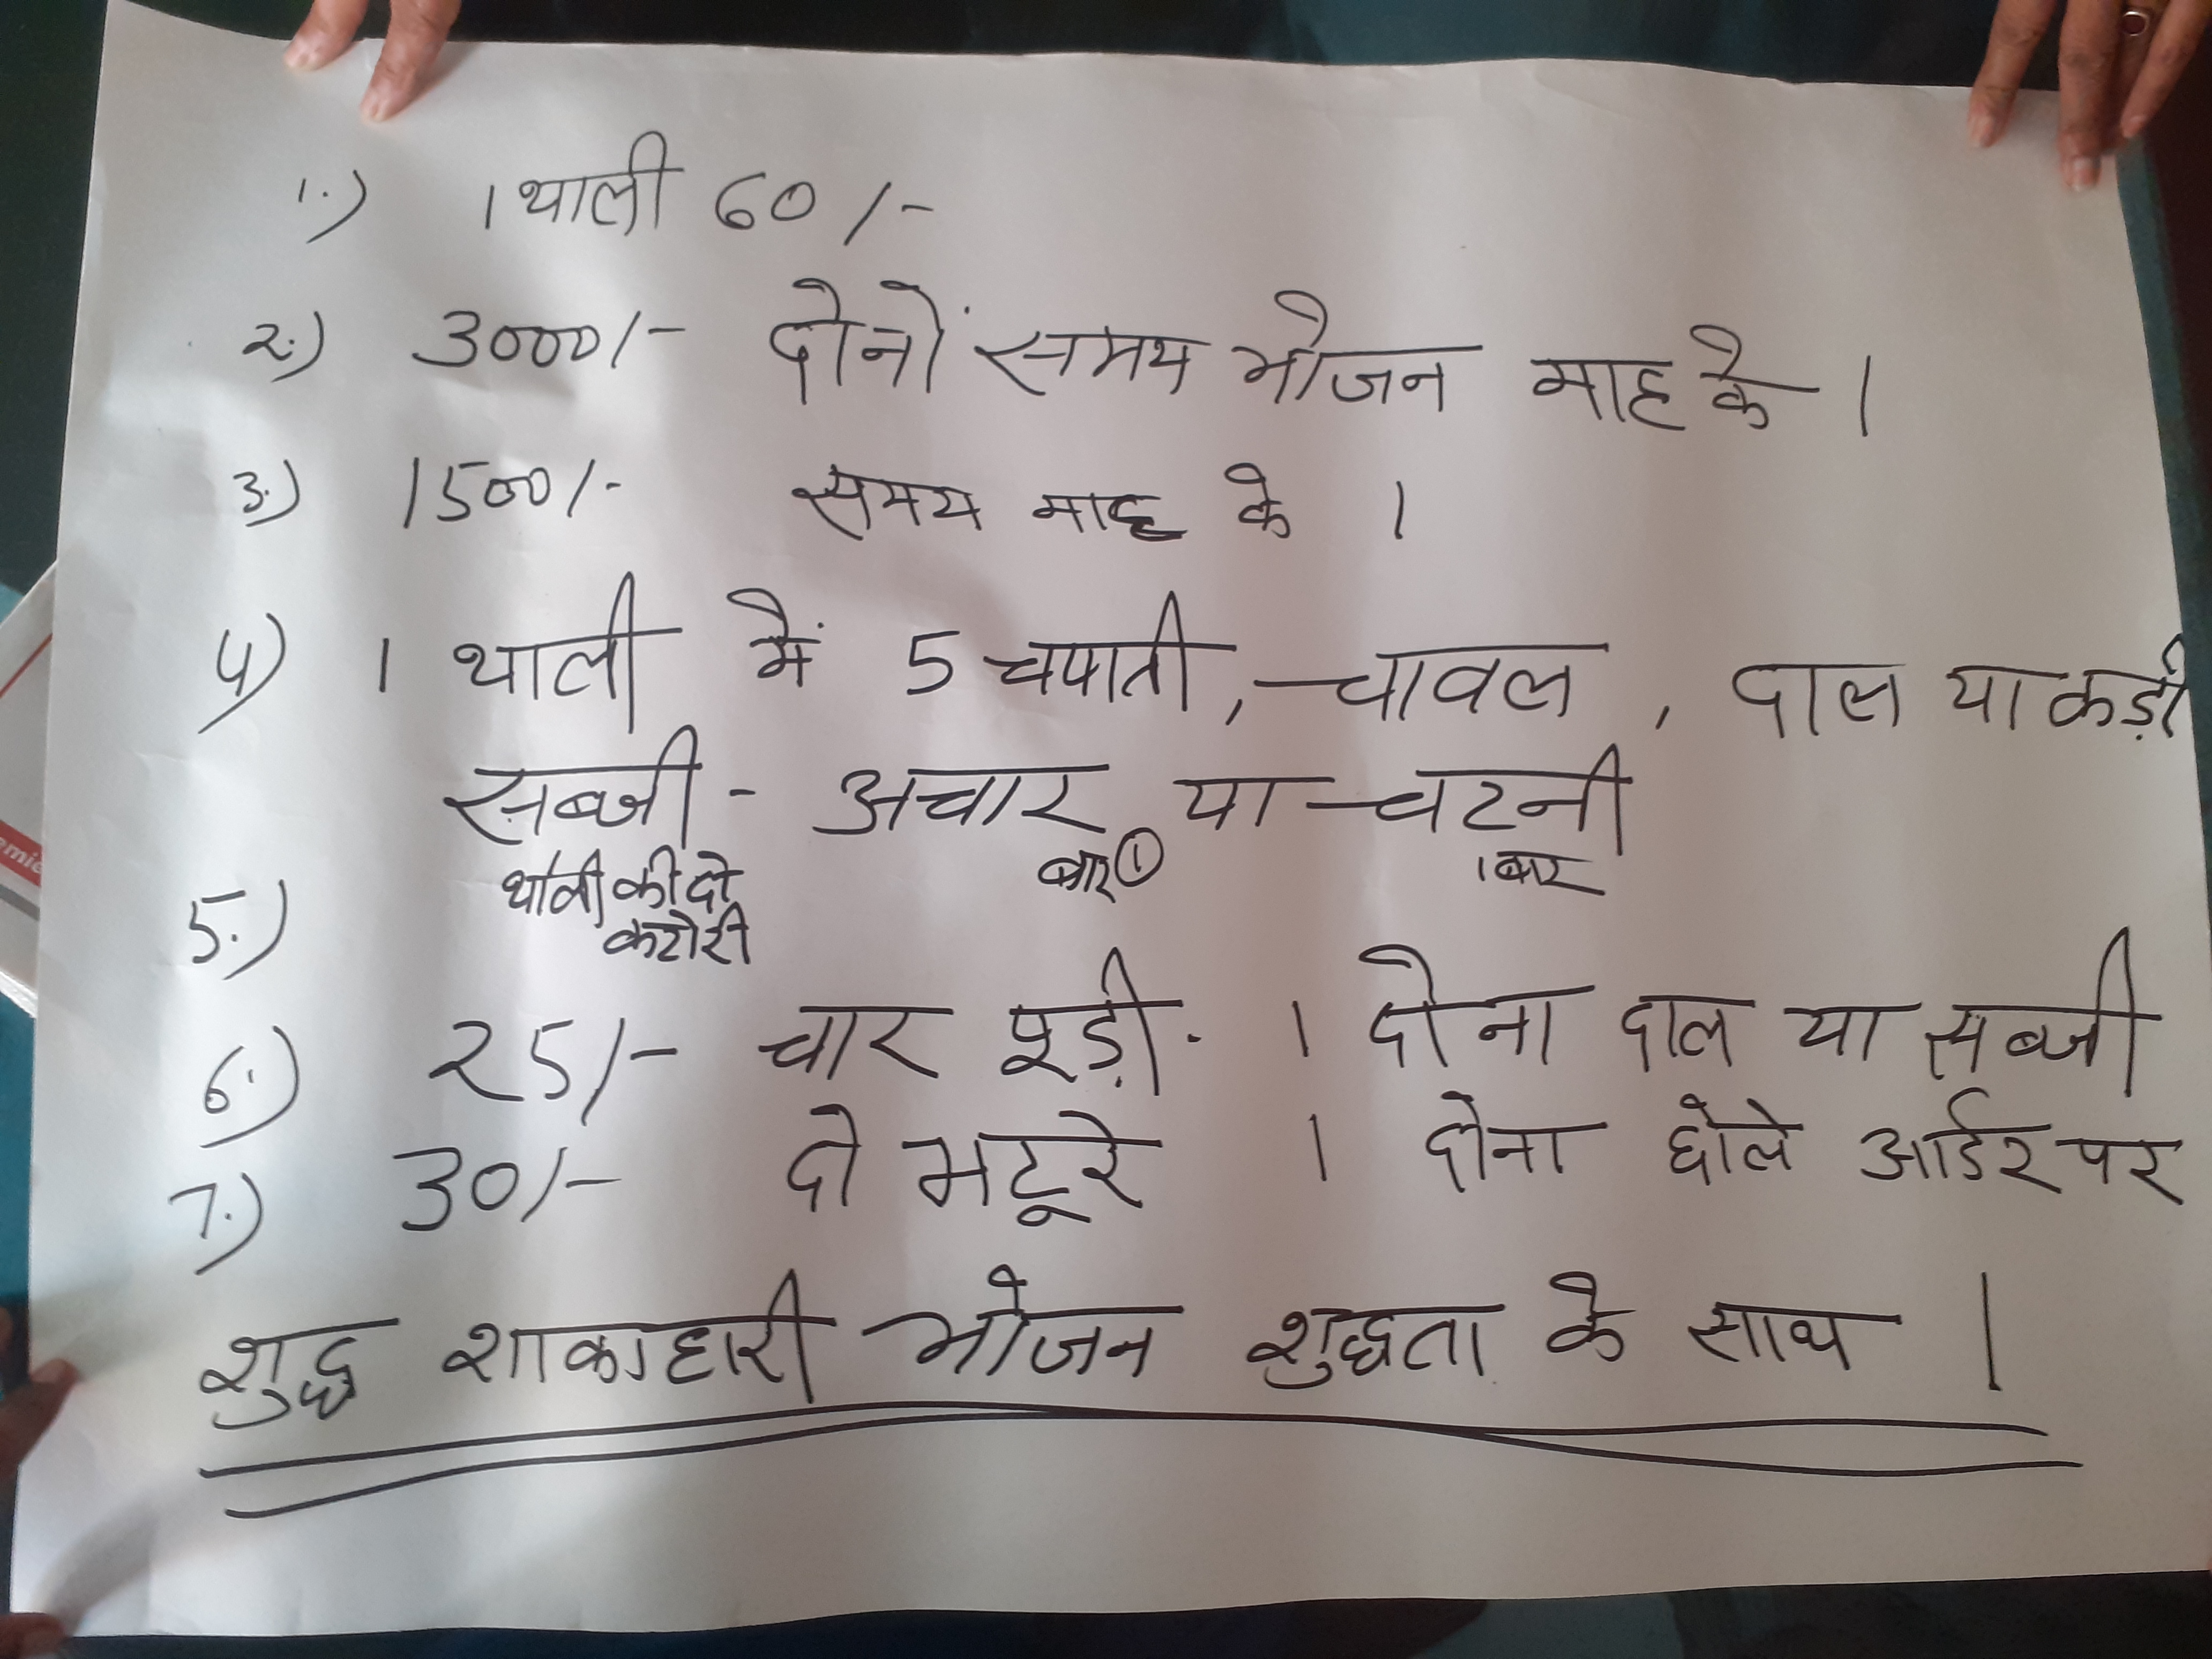 1.) 1 थाली 60/-
२.) 3000/- दोनों समय भोजन माह के ।
3.) 1500/- समय माह के ।
4) 1 थाली में 5 चपाती, चावल, दाल या कड़ी
5.) सब्जी - अचार या चटनी
थाली की दो बार ① 1 बार
कटोरी
6.) २5/- चार पूड़ी. 1 दोना दाल या सब्जी
7.) 30/- दो भटूरे 1 दोना छोले आर्डर पर
शुद्ध शाकाहारी भोजन शुद्धता के साथ ।